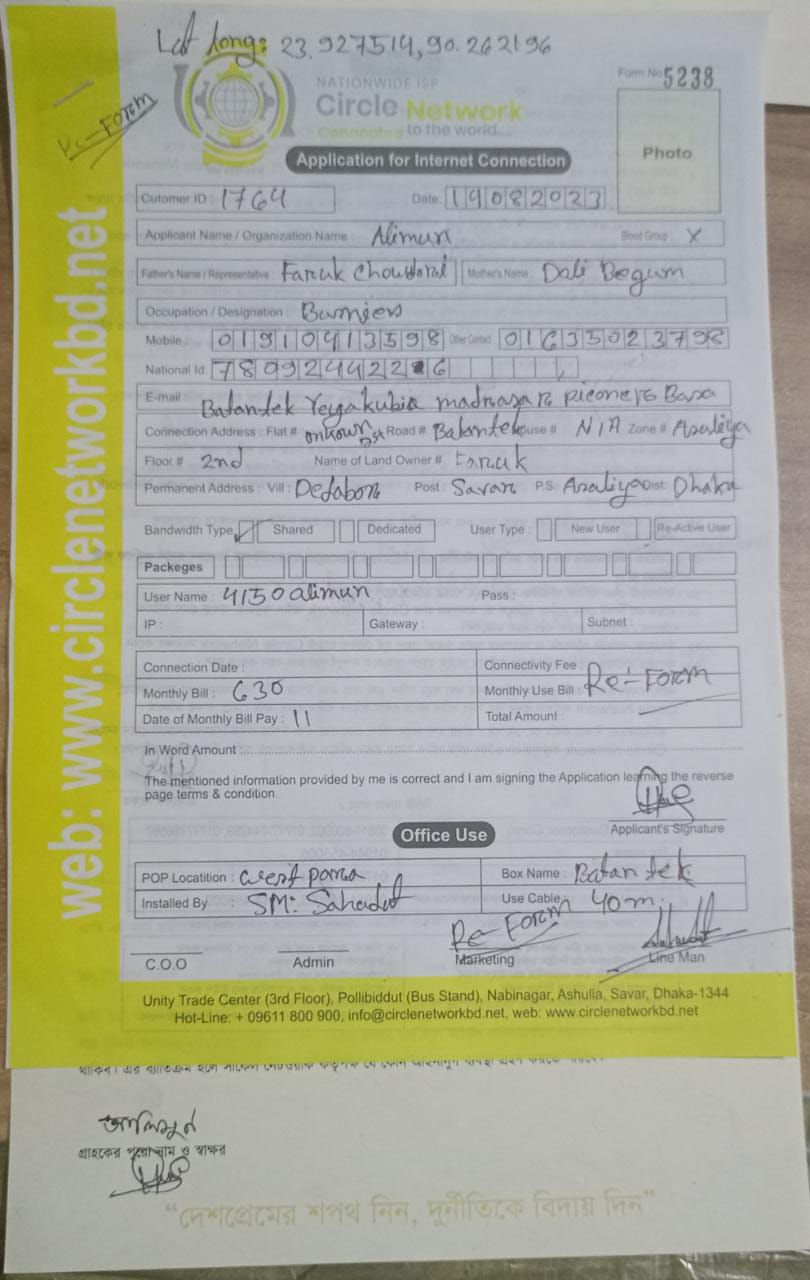 Lat long: 23.927514, 90.262196
Re-Form
NATIONWIDE ISP
Circle Network
Connected to the world...
Form No 5238
Photo
Application for Internet Connection
Cutomer ID : 1764 Date: 14082023
Applicant Name / Organization Name : Alimun Blood Group : X
Father's Name / Representative : Faruk Chowdorai Mother's Name : Dali Begum
Occupation / Designation :
Mobile : 01910413598 Other Contact 01633023798
National Id: 7809244226
E-mail : Batantek madrasar Basa
Connection Address : Flat # Road # Batantek House # N/A Zone # Asuliya
Floor # 2nd Name of Land Owner # Faruk
Permanent Address : Vill : Dedabor Post : Savar P.S. Asaliya Dist: Dhaka
Bandwidth Type ✓ Shared Dedicated User Type : New User Re-Active User
Packeges
User Name : 4150alimun Pass :
IP : Gateway : Subnet :
Connection Date : Connectivity Fee :
Monthly Bill : 630 Monthly Use Bill : Re-Form
Date of Monthly Bill Pay : 11 Total Amount :
In Word Amount :
The mentioned information provided by me is correct and I am signing the Application learning the reverse
page terms & condition.
Applicant's Signature
Office Use
POP Locatition : west para Box Name : Batantek
Installed By : SM: Sahadut Use Cable 40m.
Re-Form
C.O.O Admin Marketing Line Man
Unity Trade Center (3rd Floor), Pollibiddut (Bus Stand), Nabinagar, Ashulia, Savar, Dhaka-1344
Hot-Line: + 09611 800 900, info@circlenetworkbd.net, web: www.circlenetworkbd.net
web: www.circlenetworkbd.net
আলিমুন
গ্রাহকের পুরো নাম ও স্বাক্ষর
“দেশপ্রেমের শপথ নিন, দুর্নীতিকে বিদায় দিন”